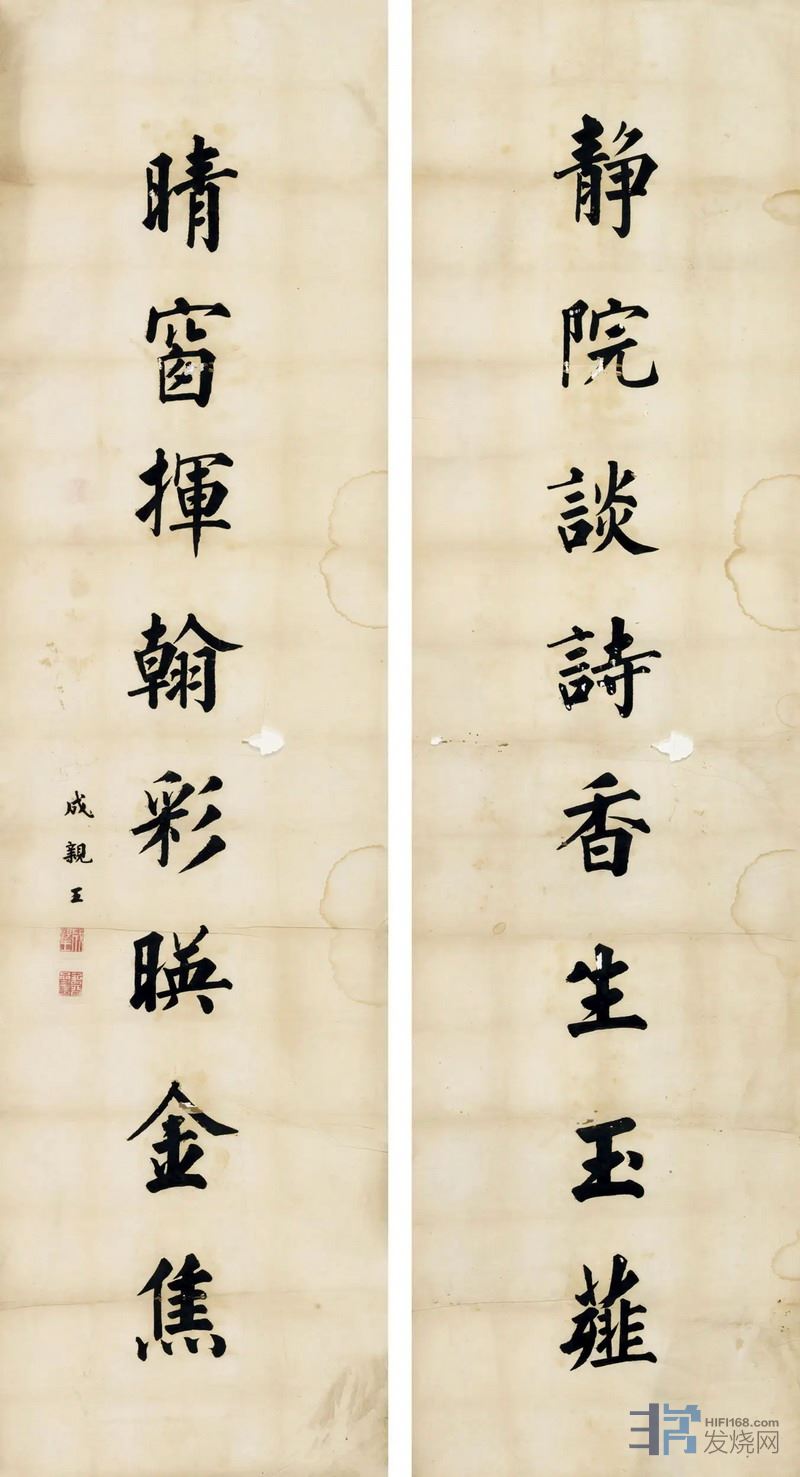 静院談詩香生玉薤
晴窗揮翰彩暎金焦
成親王
HIFI168.com
发烧网